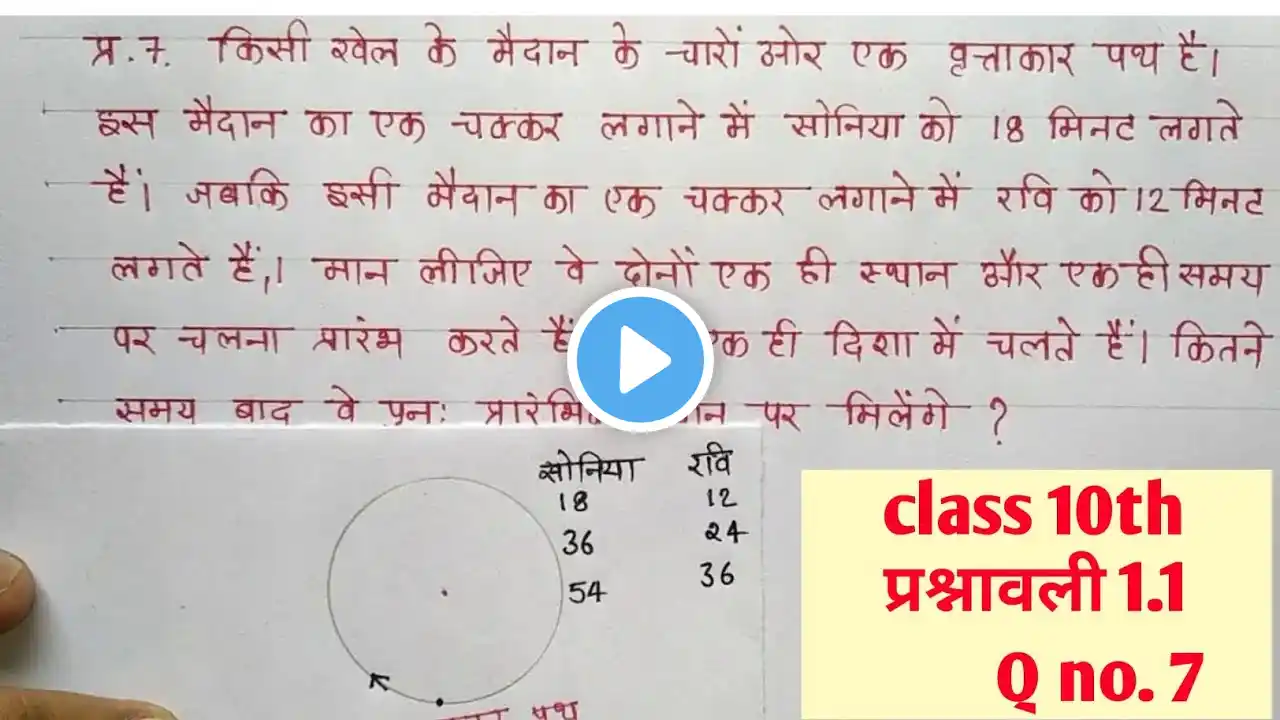 प्र.7. किसी खेल के मैदान के चारों ओर एक वृत्ताकार पथ है।
इस मैदान का एक चक्कर लगाने में सोनिया को 18 मिनट लगते
हैं। जबकि इसी मैदान का एक चक्कर लगाने में रवि को 12 मिनट
लगते हैं,। मान लीजिए वे दोनों एक ही स्थान और एक ही समय
पर चलना प्रारंभ करते हैं एक ही दिशा में चलते हैं। कितने
समय बाद वे पुनः पर मिलेंगे ?
सोनिया रवि
18 12
36 24
54 36
पथ
class 10th
प्रश्नावली 1.1
Q no. 7